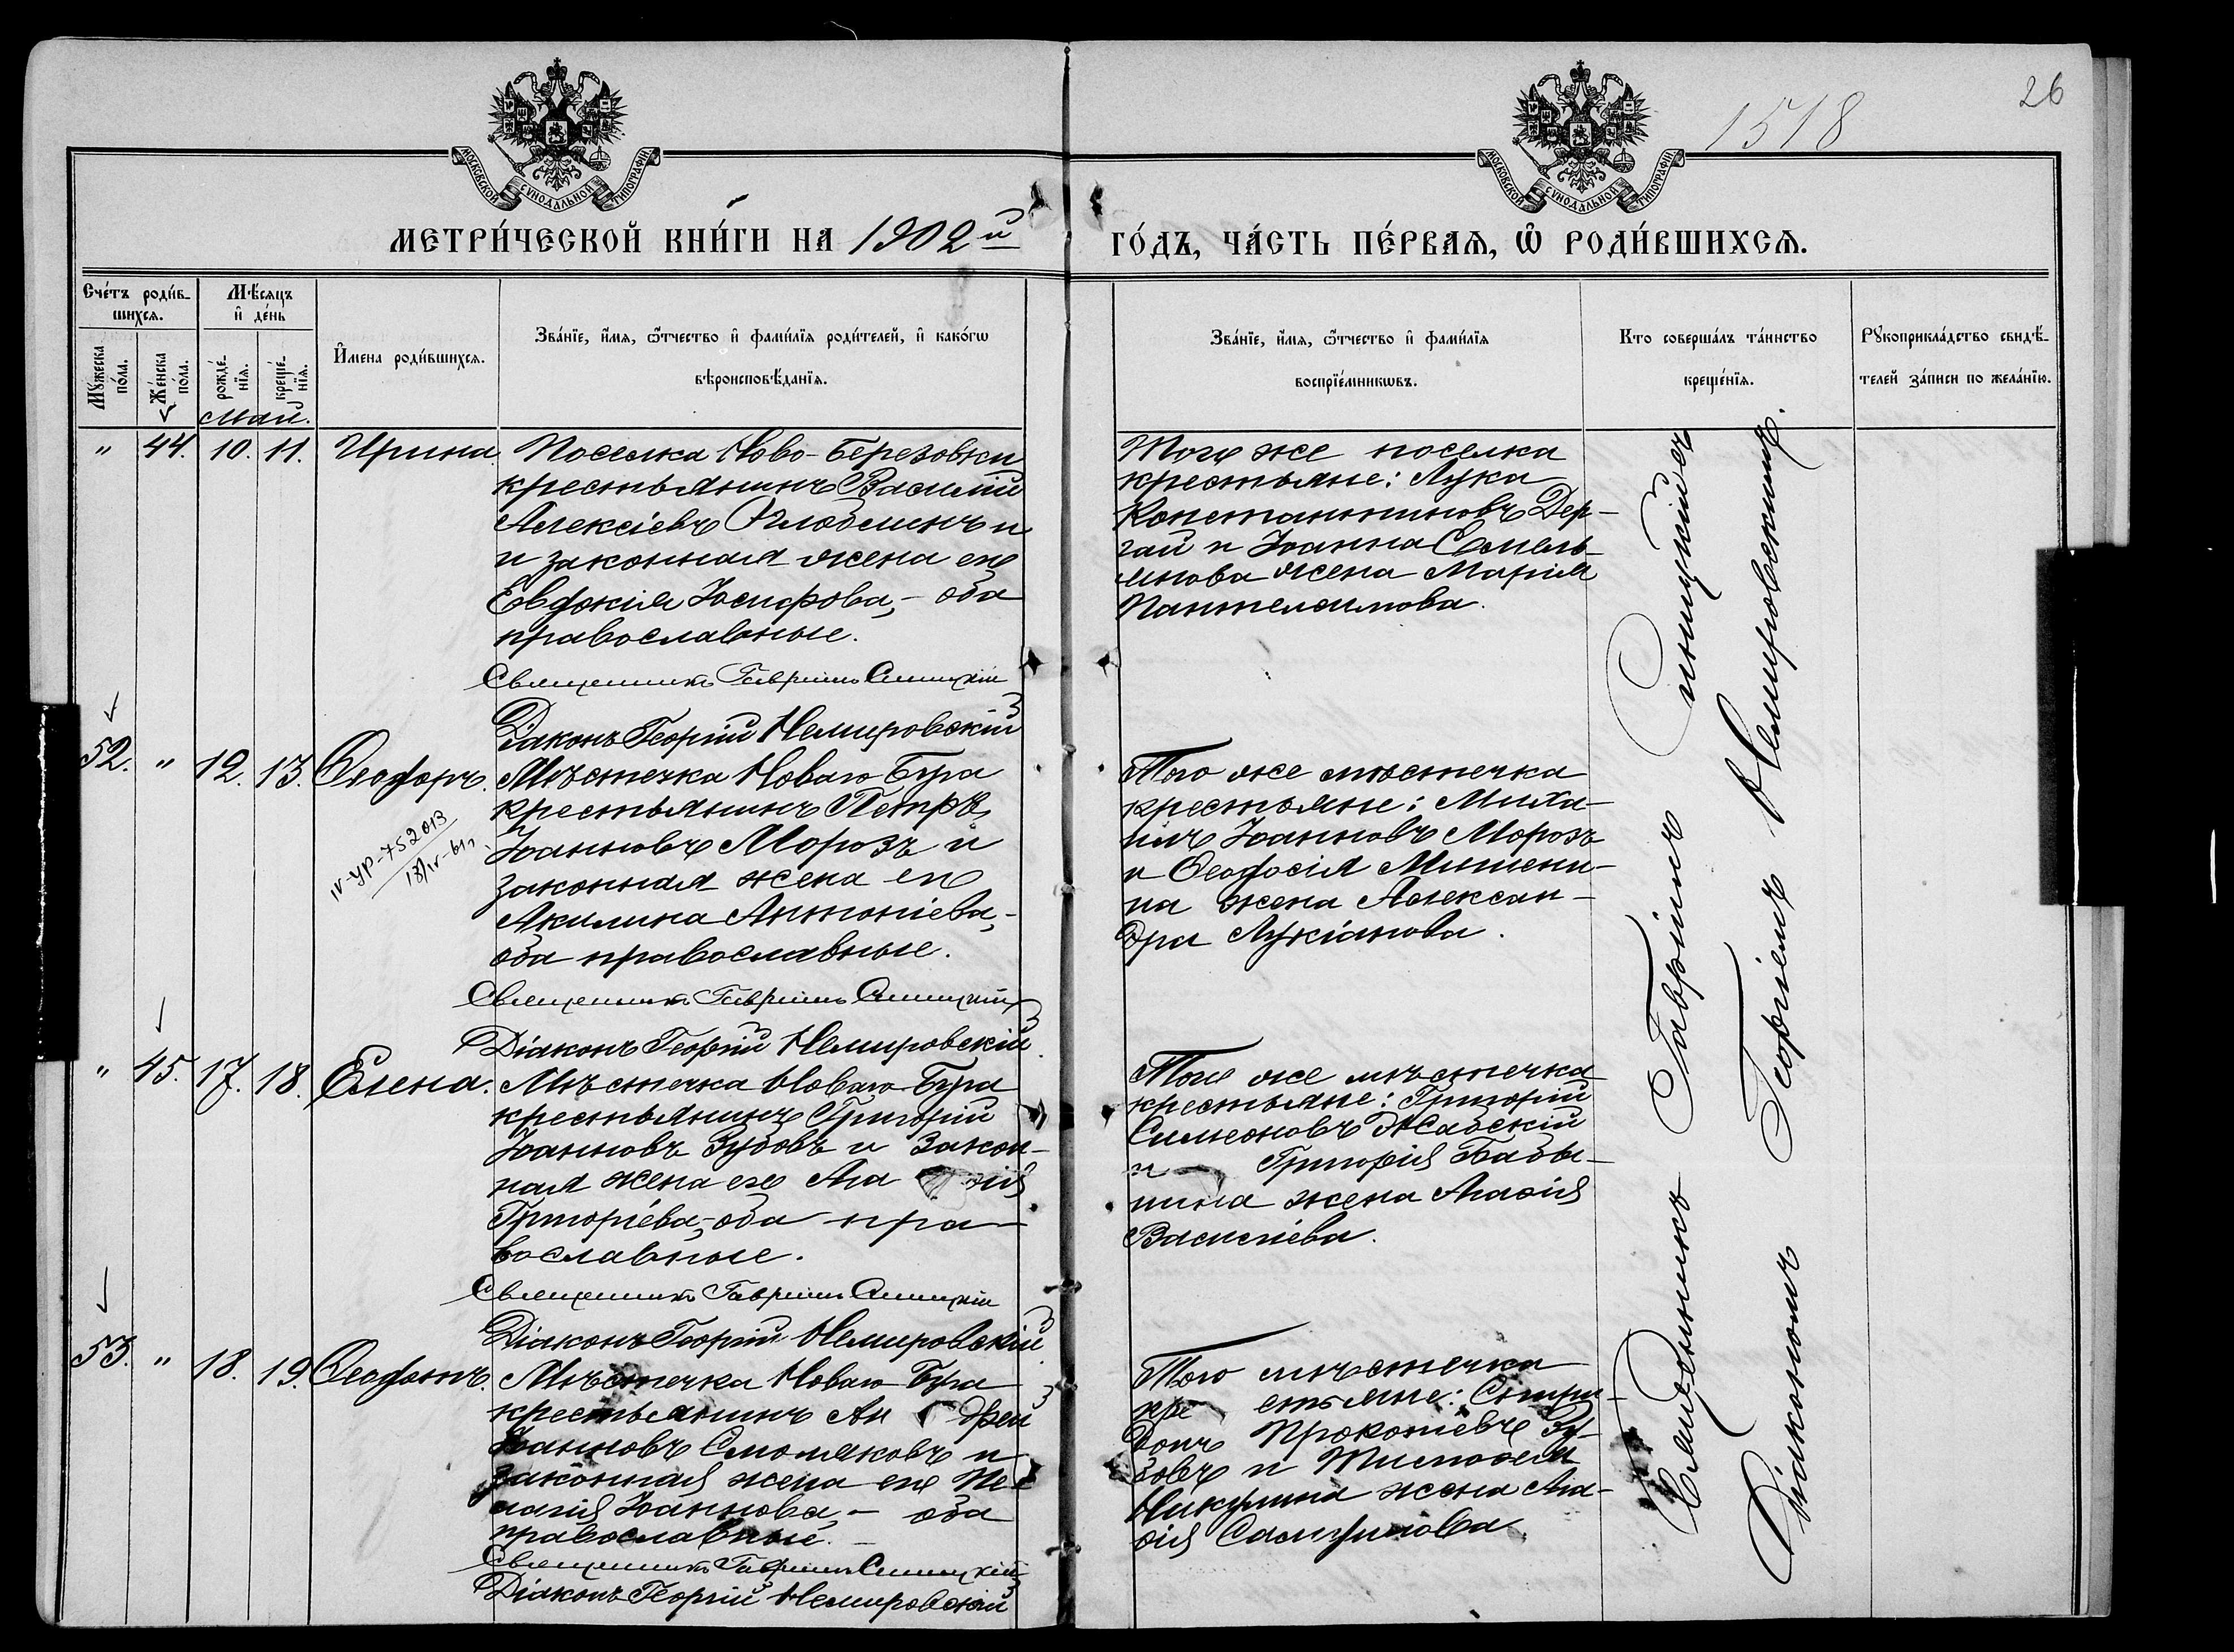 1518
26
МОСКОВСКОЙ СѴНОДАЛЬНОЙ ТИПОГРАФІИ
МОСКОВСКОЙ СѴНОДАЛЬНОЙ ТИПОГРАФІИ
МЕТРИ́ЧЕСКОЙ КНИ́ГИ НА 1902й
ГО́ДЪ, ЧА́СТЬ ПЕ́РВАѦ, Ѽ РОДИ́ВШИХСѦ.
Сче́тъ роди́в-
шихсѧ.
Мꙋ́жеска по́ла.
Же́нска по́ла.
Мѣ́сѧцъ и҆ де́нь
рожде́-
нїѧ.
креще́-
нїѧ.
И҆мена роди́вшихсѧ.
Зва́нїе, и҆́мѧ, ѻ҆́тчество и҆ фами́лїѧ роди́телей, и҆ како́гѡ
вѣроисповѣ́данїѧ.
Зва́нїе, и҆́мѧ, ѻ҆́тчество и҆ фами́лїѧ
воспрїе́мникѡвъ.
Кто соверша́лъ та́инство
креще́нїѧ.
Рꙋкоприкла́дство свидѣ́-
телей за́писи по жела́нїю.
Май.
" 44. 10. 11. Ирина.
Поселка Ново-Березовки
крестьянинъ Василій
Алексіевъ и
и законная жена его
Евдокія Іосифова, - оба
православные.
Священникъ Гавріилъ Синицкій
Діаконъ Георгій Немировскій
Того же поселка
крестьяне: Лука
Константиновъ Дер-
гай и Іоанна Емель-
янова жена Марія
Пантелеимова.
52. " 12. 13. Ѳеодоръ.
IV-УР-752013
13/IV-61г.
Мѣстечка Новаго Буга
крестьянинъ Петръ
Іоанновъ Морозъ и
законная жена его
Акилина Антоніева, -
оба православные.
Священникъ Гавріилъ Синицкій
Діаконъ Георгій Немировскій
Того же мѣстечка
крестьяне: Миха-
илъ Іоанновъ Морозъ
и Ѳеодосія Мишени-
на жена Алексан-
дра Лукіанова.
" 45. 17. 18. Елена.
Мѣстечка Новаго Буга
крестьянинъ Григорій
Іоанновъ Зубовъ и закон-
ная жена его
Григоріева, - оба пра-
вославные.
Священникъ Гавріилъ Синицкій
Діаконъ Георгій Немировскій
Того же мѣстечка
крестьяне: Григорій
Симеоновъ Жабскій
и Григорія Бабы-
нина жена Агафія
Василіева.
53. " 18. 19. Ѳеодотъ.
Мѣстечка Новаго Буга
крестьянинъ Ан дрей
Іоанновъ Смоляковъ и
законная жена его Пе-
лагія Іоаннова, - оба
православные. -
Священникъ Гавріилъ Синицкій
Діаконъ Георгій Немировскій
Того мѣстечка
кре стьяне: Спири-
донъ Прокопіевъ Зу-
бовъ и Тимофея
Никулина жена Ага-
фія
Священникъ Гавріилъ Синицкій съ
Діакономъ Георгіемъ Немировскимъ.